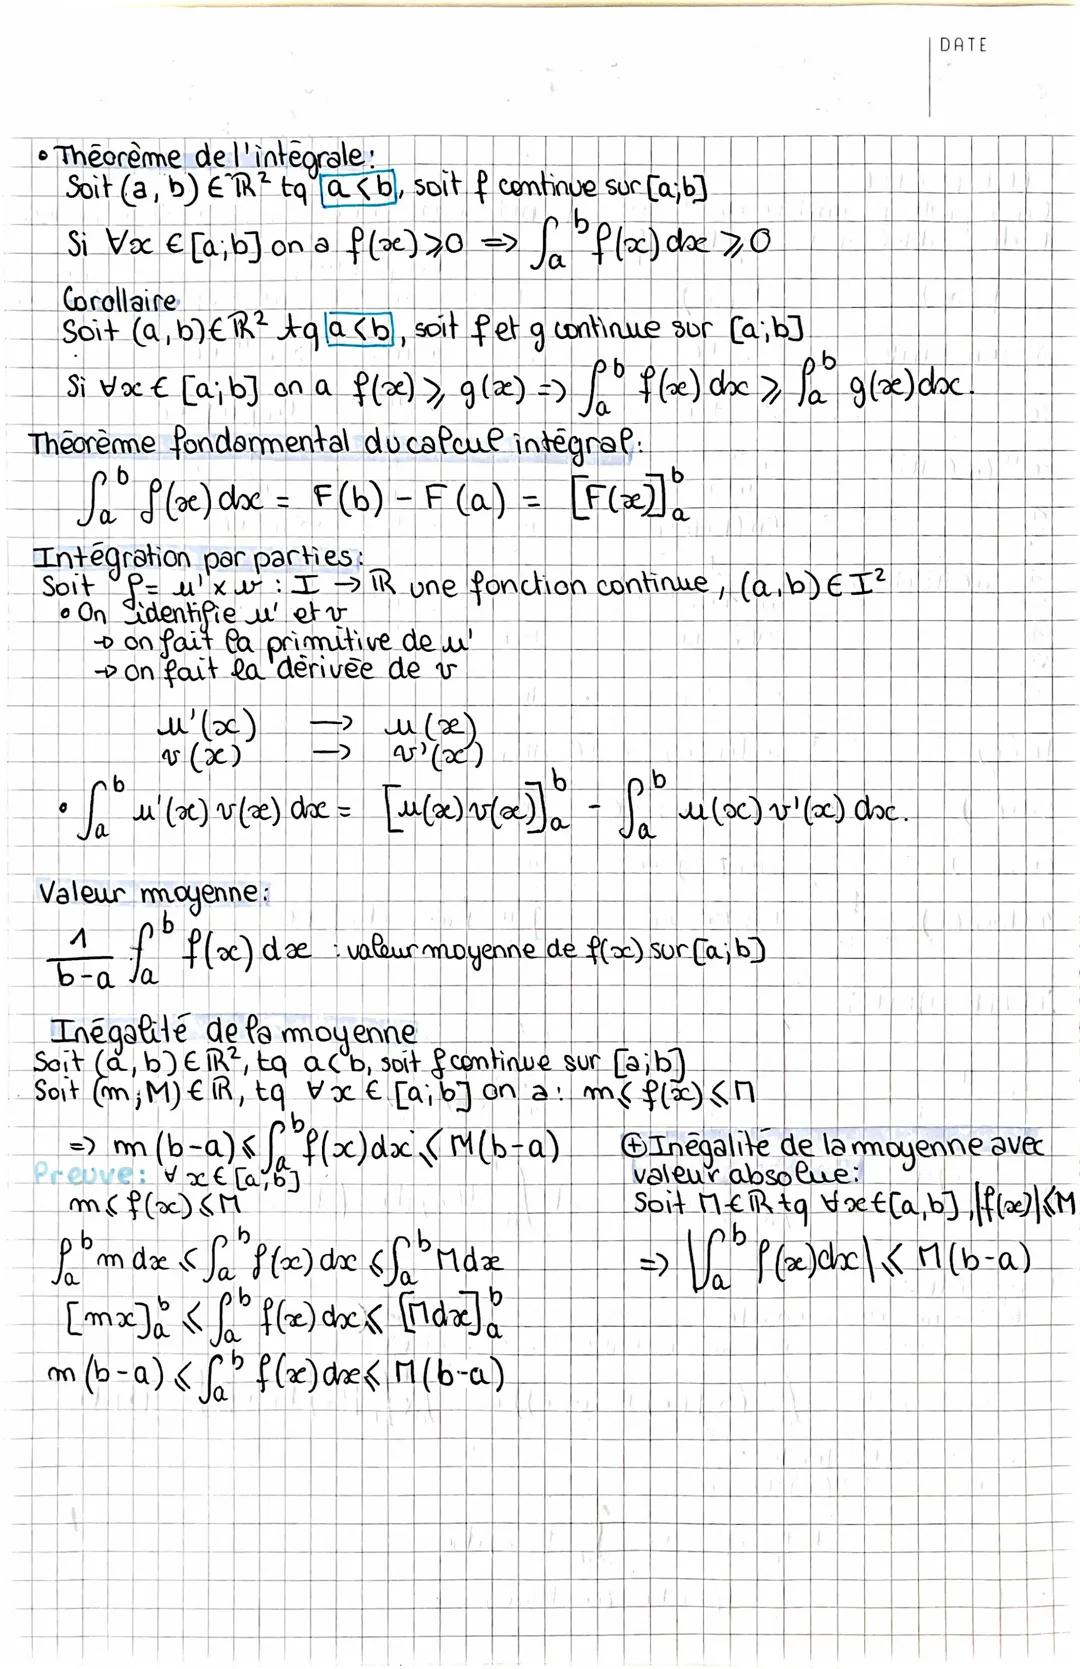 DATE
• Théorème de l'intégrale:
Soit (a, b) ∈ ℝ² tq a < b, soit f continue sur [a;b]
Si ∀x ∈ [a;b] on a f(x) ⩾ 0 => ∫_a^b f(x) dx ⩾ 0
Corollaire
Soit (a, b) ∈ ℝ² tq a < b, soit f et g continue sur [a;b]
Si ∀x ∈ [a;b] on a f(x) ⩾ g(x) => ∫_a^b f(x) dx ⩾ ∫_a^b g(x) dx.
Théorème fondormental du calcul intégral:
∫_a^b f(x) dx = F(b) - F(a) = [F(x)]_a^b
Intégration par parties:
Soit f = u' × v : I → ℝ une fonction continue, (a,b) ∈ I²
• On identifie u' et v
→ on fait la primitive de u'
→ on fait la dérivée de v
u'(x) → u(x)
v(x) → v'(x)
• ∫_a^b u'(x) v(x) dx = [u(x) v(x)]_a^b - ∫_a^b u(x) v'(x) dx.
Valeur moyenne:
1/(b-a) ∫_a^b f(x) dx : valeur moyenne de f(x) sur [a;b]
Inégalité de la moyenne
Soit (a, b) ∈ ℝ², tq a < b, soit f continue sur [a;b]
Soit (m;M) ∈ ℝ, tq ∀x ∈ [a;b] on a: m ⩽ f(x) ⩽ M
=> m(b-a) ⩽ ∫_a^b f(x) dx ⩽ M(b-a)
Preuve: ∀x ∈ [a;b]
m ⩽ f(x) ⩽ M
∫_a^b m dx ⩽ ∫_a^b f(x) dx ⩽ ∫_a^b M dx
[mx]_a^b ⩽ ∫_a^b f(x) dx ⩽ [Mdx]_a^b
m(b-a) ⩽ ∫_a^b f(x) dx ⩽ M(b-a)
⊕ Inégalité de la moyenne avec
valeur absolue:
Soit M ∈ ℝ tq ∀x ∈ [a,b], |f(x)| ⩽ M
=> |∫_a^b f(x) dx| ⩽ M(b-a)